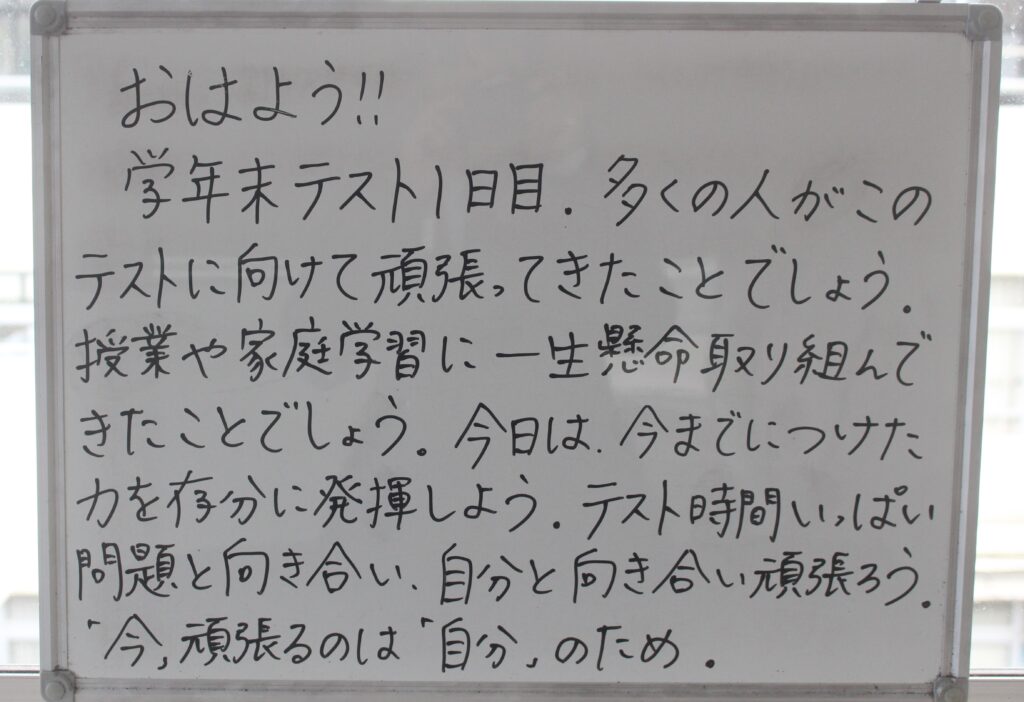 おはよう!!
学年末テスト1日目. 多くの人がこの
テストに向けて頑張ってきたことでしょう.
授業や家庭学習に一生懸命取り組んで
きたことでしょう。今日は、今までにつけた
力を存分に発揮しよう. テスト時間いっぱい
問題と向き合い、自分と向き合い頑張ろう.
「今」頑張るのは「自分」のため.